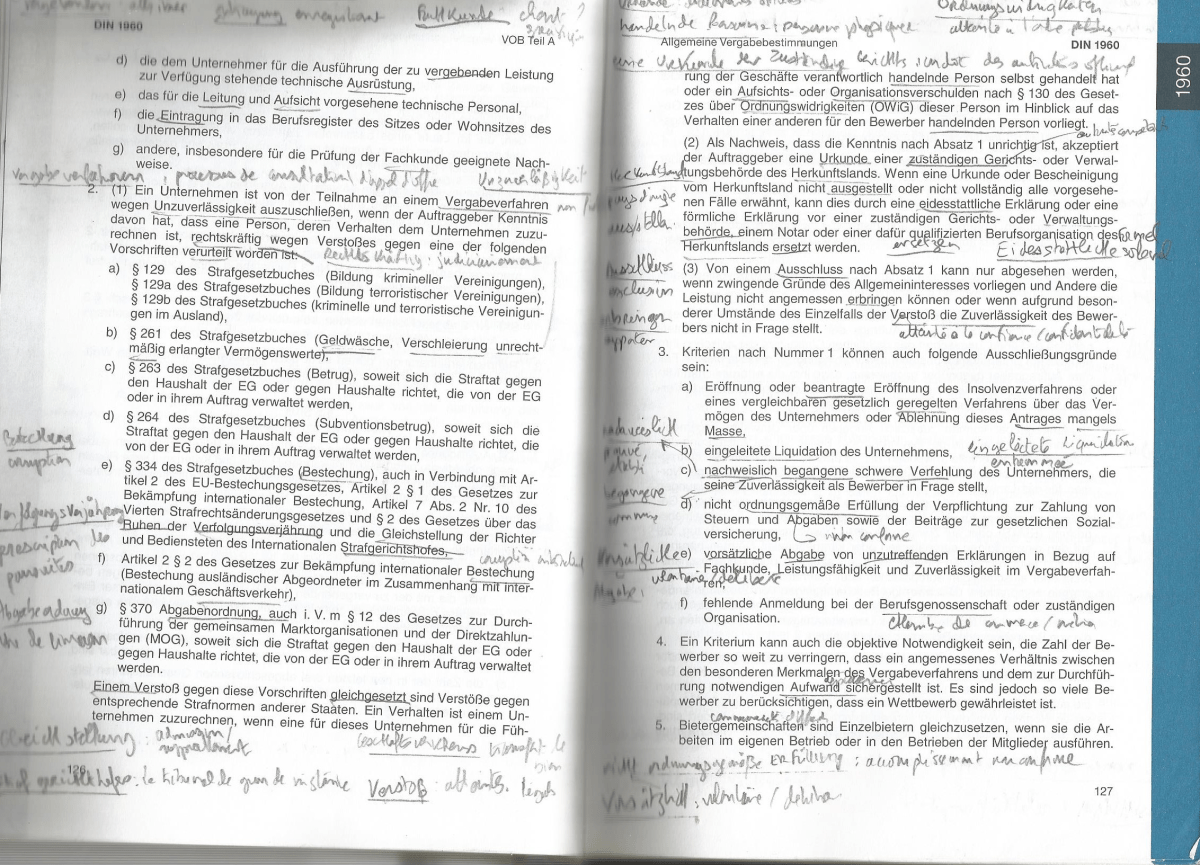 DIN 1960
VOB Teil A
d) die dem Unternehmer für die Ausführung der zu vergebenden Leistung
zur Verfügung stehende technische Ausrüstung,
e) das für die Leitung und Aufsicht vorgesehene technische Personal,
f) die Eintragung in das Berufsregister des Sitzes oder Wohnsitzes des
Unternehmers,
g) andere, insbesondere für die Prüfung der Fachkunde geeignete Nach-
weise.
2. (1) Ein Unternehmen ist von der Teilnahme an einem Vergabeverfahren
wegen Unzuverlässigkeit auszuschließen, wenn der Auftraggeber Kenntnis
davon hat, dass eine Person, deren Verhalten dem Unternehmen zuzu-
rechnen ist, rechtskräftig wegen Verstoßes gegen eine der folgenden
Vorschriften verurteilt worden ist:
a) § 129 des Strafgesetzbuches (Bildung krimineller Vereinigungen),
§ 129a des Strafgesetzbuches (Bildung terroristischer Vereinigungen),
§ 129b des Strafgesetzbuches (kriminelle und terroristische Vereinigun-
gen im Ausland),
b) § 261 des Strafgesetzbuches (Geldwäsche, Verschleierung unrecht-
mäßig erlangter Vermögenswerte),
c) § 263 des Strafgesetzbuches (Betrug), soweit sich die Straftat gegen
den Haushalt der EG oder gegen Haushalte richtet, die von der EG
oder in ihrem Auftrag verwaltet werden,
d) § 264 des Strafgesetzbuches (Subventionsbetrug), soweit sich die
Straftat gegen den Haushalt der EG oder gegen Haushalte richtet, die
von der EG oder in ihrem Auftrag verwaltet werden,
Bestechung
corruption
e) § 334 des Strafgesetzbuches (Bestechung), auch in Verbindung mit Ar-
tikel 2 des EU-Bestechungsgesetzes, Artikel 2 § 1 des Gesetzes zur
Bekämpfung internationaler Bestechung, Artikel 7 Abs. 2 Nr. 10 des
Vierten Strafrechtsänderungsgesetzes und § 2 des Gesetzes über das
Ruhen der Verfolgungsverjährung und die Gleichstellung der Richter
und Bediensteten des Internationalen Strafgerichtshofes,
f) Artikel 2 § 2 des Gesetzes zur Bekämpfung internationaler Bestechung
(Bestechung ausländischer Abgeordneter im Zusammenhang mit inter-
nationalem Geschäftsverkehr),
g) § 370 Abgabenordnung, auch i. V. m § 12 des Gesetzes zur Durch-
führung der gemeinsamen Marktorganisationen und der Direktzahlun-
gen (MOG), soweit sich die Straftat gegen den Haushalt der EG oder
gegen Haushalte richtet, die von der EG oder in ihrem Auftrag verwaltet
werden.
Einem Verstoß gegen diese Vorschriften gleichgesetzt sind Verstöße gegen
entsprechende Strafnormen anderer Staaten. Ein Verhalten ist einem Un-
ternehmen zuzurechnen, wenn eine für dieses Unternehmen für die Füh-
Allgemeine Vergabebestimmungen
DIN 1960
1960
rung der Geschäfte verantwortlich handelnde Person selbst gehandelt hat
oder ein Aufsichts- oder Organisationsverschulden nach § 130 des Geset-
zes über Ordnungswidrigkeiten (OWiG) dieser Person im Hinblick auf das
Verhalten einer anderen für den Bewerber handelnden Person vorliegt.
(2) Als Nachweis, dass die Kenntnis nach Absatz 1 unrichtig ist, akzeptiert
der Auftraggeber eine Urkunde einer zuständigen Gerichts- oder Verwal-
tungsbehörde des Herkunftslands. Wenn eine Urkunde oder Bescheinigung
vom Herkunftsland nicht ausgestellt oder nicht vollständig alle vorgesehe-
nen Fälle erwähnt, kann dies durch eine eidesstattliche Erklärung oder eine
förmliche Erklärung vor einer zuständigen Gerichts- oder Verwaltungs-
behörde, einem Notar oder einer dafür qualifizierten Berufsorganisation des
Herkunftslands ersetzt werden.
ersetzen
(3) Von einem Ausschluss nach Absatz 1 kann nur abgesehen werden,
wenn zwingende Gründe des Allgemeininteresses vorliegen und Andere die
Leistung nicht angemessen erbringen können oder wenn aufgrund beson-
derer Umstände des Einzelfalls der Verstoß die Zuverlässigkeit des Bewer-
bers nicht in Frage stellt.
3. Kriterien nach Nummer 1 können auch folgende Ausschließungsgründe
sein:
a) Eröffnung oder beantragte Eröffnung des Insolvenzverfahrens oder
eines vergleichbaren gesetzlich geregelten Verfahrens über das Ver-
mögen des Unternehmers oder Ablehnung dieses Antrages mangels
Masse,
b) eingeleitete Liquidation des Unternehmens,
eingeleitete Liquidation
c) nachweislich begangene schwere Verfehlung des Unternehmers, die
seine Zuverlässigkeit als Bewerber in Frage stellt,
d) nicht ordnungsgemäße Erfüllung der Verpflichtung zur Zahlung von
Steuern und Abgaben sowie der Beiträge zur gesetzlichen Sozial-
versicherung,
non conforme
e) vorsätzliche Abgabe von unzutreffenden Erklärungen in Bezug auf
Fachkunde, Leistungsfähigkeit und Zuverlässigkeit im Vergabeverfah-
ren,
f) fehlende Anmeldung bei der Berufsgenossenschaft oder zuständigen
Organisation.
4. Ein Kriterium kann auch die objektive Notwendigkeit sein, die Zahl der Be-
werber so weit zu verringern, dass ein angemessenes Verhältnis zwischen
den besonderen Merkmalen des Vergabeverfahrens und dem zur Durchfüh-
rung notwendigen Aufwand sichergestellt ist. Es sind jedoch so viele Be-
werber zu berücksichtigen, dass ein Wettbewerb gewährleistet ist.
5. Bietergemeinschaften sind Einzelbietern gleichzusetzen, wenn sie die Ar-
beiten im eigenen Betrieb oder in den Betrieben der Mitglieder ausführen.
nicht ordnungsgemäße Erfüllung : accomplissement non conforme
127